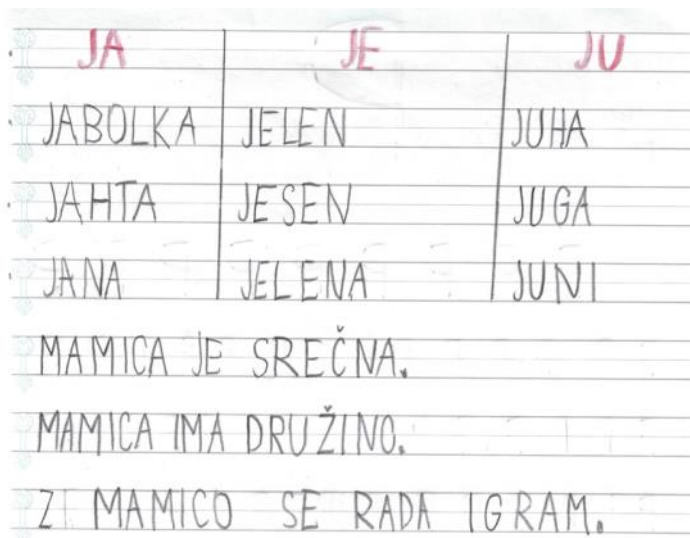 JA JE JU
JABOLKA JELEN JUHA
JAHTA JESEN JUGA
JANA JELENA JUNI
MAMICA JE SREČNA.
MAMICA IMA DRUŽINO.
Z MAMICO SE RADA IGRAM.